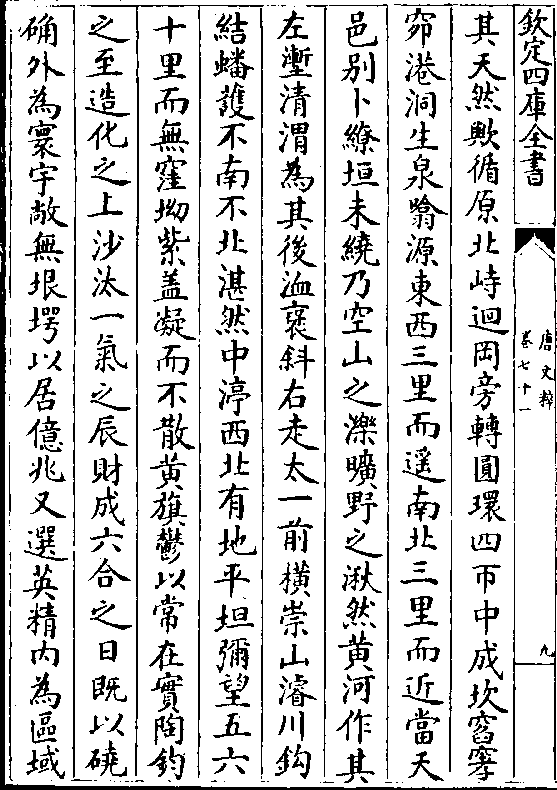 欽定四庫全書
唐文粹
卷七十一
九
其天然歟循原北峙迴岡旁轉圓環四帀中成坎窞窙
窌港洞生泉翕源東西三里而遥南北三里而近當天
邑别卜繚垣未繞乃空山之濼曠野之湫然黄河作其
左壍清渭為其後洫褒斜右走太一前横崇山濬川鈎
結蟠䕶不南不北湛然中渟西北有地平坦彌望五六
十里而無窪坳紫盖凝而不散黄旗鬱以常在實陶鈞
之至造化之上沙汰一氣之辰財成六合之日既以磽
确外為寰宇敞無垠堮以居億兆又選英精内為區域